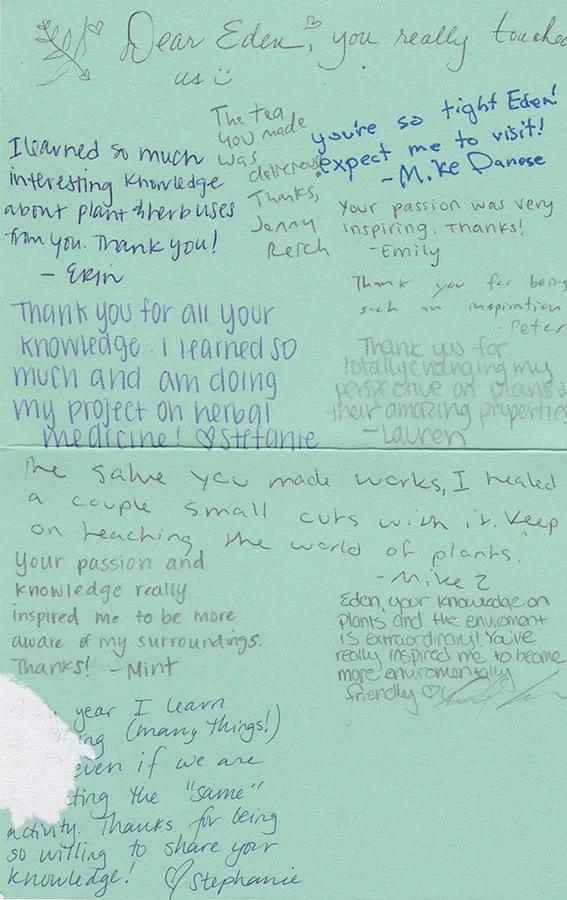 Dear Eden, you really touched
us
The tea
you made
was
delicious
Thanks,
Jenny
Reich
you're so tight Eden!
expect me to visit!
- Mike Danese
I learned so much
interesting knowledge
about plant & herb uses
from you. Thank you!
- Erin
Your passion was very
inspiring. Thanks!
- Emily
Thank you for being
such an inspiration
- Peter
Thank you for all your
knowledge. I learned so
much and am doing
my project on herbal
medicine! ♡ Stefanie
Thank you for
totally changing my
perspective on plants &
their amazing properties
- Lauren
The salve you made works, I healed
a couple small cuts with it. Keep
on teaching the world of plants.
- Mike Z
Your passion and
knowledge really
inspired me to be more
aware of my surroundings.
Thanks! - Mint
Eden, your knowledge on
plants and the enviroment
is extraordinary! You've
really inspired me to become
more enviromentally
friendly ♡
year I learn
(many things!)
even if we are
the "same"
activity. Thanks for being
so willing to share your
knowledge! ♡ Stephanie